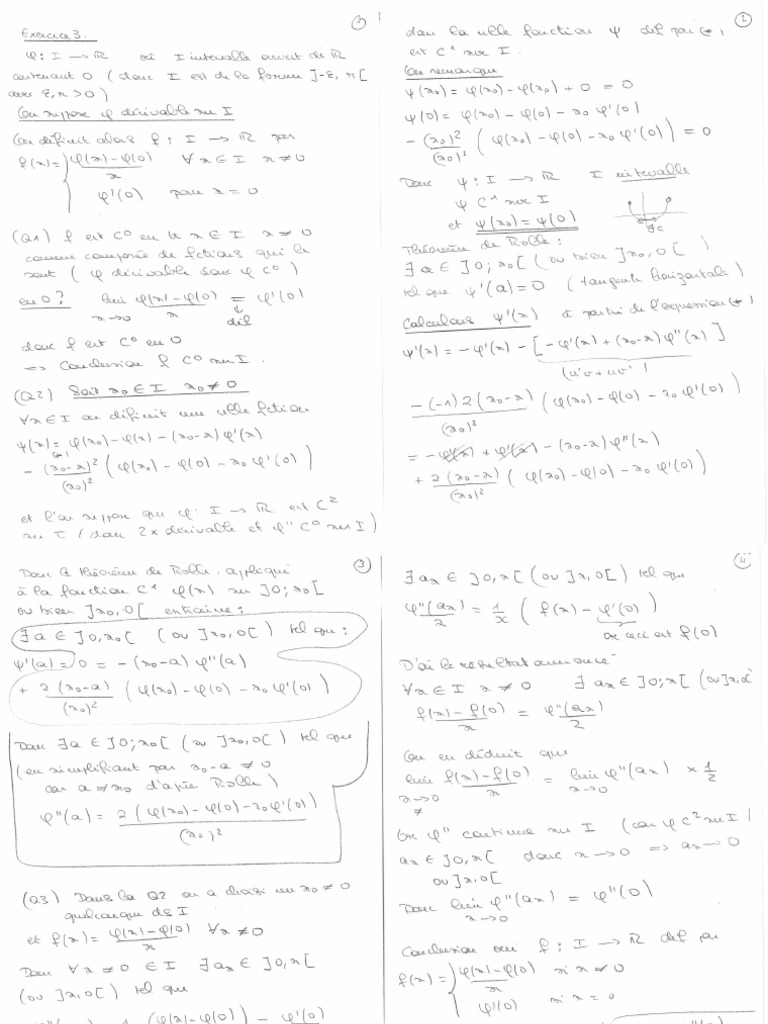 1
Exercice 3.
φ : I → ℝ où I intervalle ouvert de ℝ
contenant 0 (donc I est de la forme ]-ε, r[
avec ε, r > 0)
On suppose φ dérivable sur I
On définit alors f : I → ℝ par
f(x) = { (φ(x) - φ(0))/x ∀ x ∈ I x ≠ 0
φ'(0) pour x = 0
(Q1) f est C⁰ en tt x ∈ I x ≠ 0
comme composée de fctions qui le
sont (φ dérivable donc φ C⁰)
en 0? lim x→0 (φ(x) - φ(0))/x = φ'(0)
↓ déf
donc f est C⁰ en 0
=> Conclusion f C⁰ sur I.
(Q2) Soit x₀ ∈ I x₀ ≠ 0
∀ x ∈ I on définit une nlle fction
ψ(x) = φ(x₀) - φ(x) - (x₀-x) φ'(x)
- (x₀-x)²/(x₀)² (φ(x₀) - φ(0) - x₀ φ'(0))
et l'on suppose que φ : I → ℝ est C²
sur I (donc 2x dérivable et φ'' C⁰ sur I)
2
dans la nlle fonction ψ déf par (*),
est C¹ sur I.
On remarque
ψ(x₀) = φ(x₀) - φ(x₀) + 0 = 0
ψ(0) = φ(x₀) - φ(0) - x₀ φ'(0)
- (x₀)²/(x₀)² (φ(x₀) - φ(0) - x₀ φ'(0)) = 0
Donc ψ : I → ℝ I intervalle
ψ C¹ sur I
et ψ(x₀) = ψ(0)
Théorème de Rolle :
∃ a ∈ ]0; x₀[ (ou bien ]x₀, 0[ )
tel que ψ'(a) = 0 (tangente horizontale)
Calculons ψ'(x) à partir de l'expression (*)
ψ'(x) = - φ'(x) - [ - φ'(x) + (x₀-x) φ''(x) ]
(u'v + uv')
- (-1) 2 (x₀-x)/(x₀)² (φ(x₀) - φ(0) - x₀ φ'(0))
= - φ'(x) + φ'(x) - (x₀-x) φ''(x)
+ 2(x₀-x)/(x₀)² (φ(x₀) - φ(0) - x₀ φ'(0))
3
Donc le théorème de Rolle appliqué
à la fonction C¹ ψ(x) sur ]0; x₀[
ou bien ]x₀, 0[ entraîne :
∃ a ∈ ]0, x₀[ (ou ]x₀, 0[) tel que :
ψ'(a) = 0 = - (x₀-a) φ''(a)
+ 2(x₀-a)/(x₀)² (φ(x₀) - φ(0) - x₀ φ'(0))
Donc ∃ a ∈ ]0; x₀[ (ou ]x₀, 0[) tel que
(en simplifiant par x₀-a ≠ 0
car a ≠ x₀ d'après Rolle)
φ''(a) = 2(φ(x₀) - φ(0) - x₀ φ'(0))/(x₀)²
(Q3) Dans la Q2 on a choisi un x₀ ≠ 0
quelconque ds I
et f(x) = (φ(x) - φ(0))/x ∀ x ≠ 0
Donc ∀ x ≠ 0 ∈ I ∃ aₓ ∈ ]0, x[
(ou ]x, 0[) tel que
4
∃ aₓ ∈ ]0, x[ (ou ]x, 0[) tel que
φ''(aₓ)/2 = 1/x ( f(x) - φ'(0) )
or ceci est f(0)
D'où le résultat annoncé
∀ x ∈ I x ≠ 0 ∃ aₓ ∈ ]0; x[ (ou ]x, 0[
(f(x) - f(0))/x = φ''(aₓ)/2
On en déduit que
lim x→0 ≠ (f(x) - f(0))/x = lim x→0 φ''(aₓ) × 1/2
Or φ'' continue sur I (car φ C² sur I)
aₓ ∈ ]0, x[ donc x → 0 => aₓ → 0
ou ]x, 0[
Donc lim x→0 φ''(aₓ) = φ''(0)
Conclusion f : I → ℝ def par
f(x) = { (φ(x) - φ(0))/x si x ≠ 0
φ'(0) si x = 0